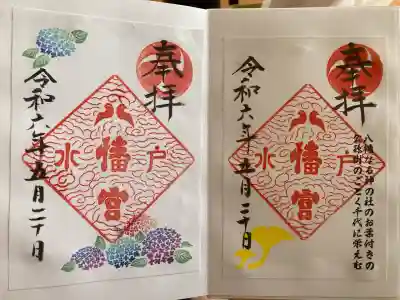 奉拝
八幡宮
水戸
令和六年五月二十日
奉拝
八幡なる神の社のお葉付きの
公孫樹のごとく千代に栄えむ
八幡宮
水戸
令和六年五月二十日